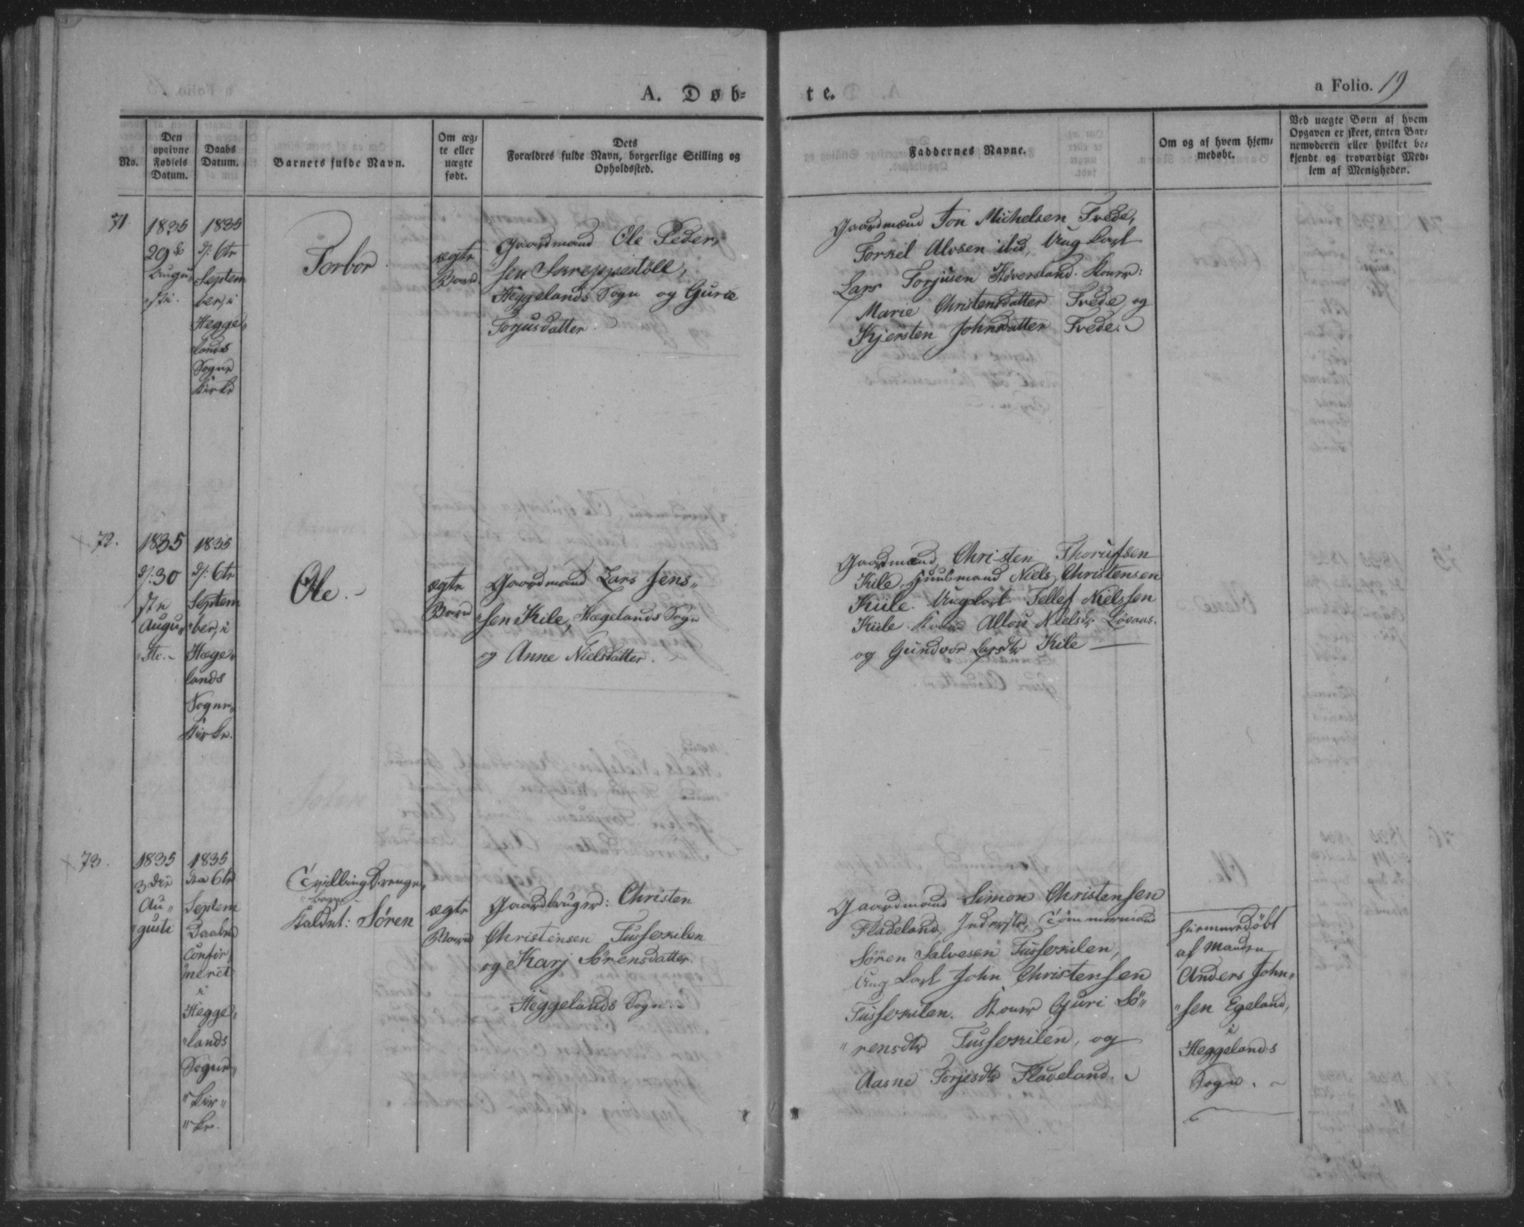 A. Døb-
te.
a Folio. 19
No.
Den
opgivne
Fødsels
Datum.
Daabs
Datum.
Barnets fulde Navn.
Om æg-
te eller
uægte
født.
Dets
Forældres fulde Navn, borgerlige Stilling og
Opholdssted.
Faddernes Navne.
Om og af hvem hjem-
medøbt.
Ved uægte Børn af hvem
Opgaven er skeet, enten Bar-
nemoderen eller hvilket be-
kjendt og troværdigt Med-
lem af Menigheden.
71
1835
29de
Augu-
sti.
1835
d: 6te
Septem
ber, i
Hegge-
lands
Sogne
Kirke
Torbor
ægte
Barn
Gaardmand Ole Peder-
sen
Heggelands Sogn og Gurie
Torjusdatter
Gaardmænd Jon Michelsen Tvede,
Torkel Alvsen ibid, Ung Karl
Lars Torjusen Høversland. Koner:
Marie Christensdatter Tvede og
Kjersten Johnsdatter Tvede.
72.
1835
d: 30
ste
Augu-
sti.
1835
d: 6te
Septem
ber, i
Hæge-
lands
Sogne-
Kirke.
Ole.
ægte
Barn
Gaardmand Lars Jens-
sen Kile, Hægelands Sogn
og Anne Nielsdatter.
Gaardmand Christen Thorufsen
Kile, Huusmand Niels Christensen
Kile. Ung Karl Tellef Nielssen
Kile. Kone Niels
og Gundvor Larsdtr Kile
73.
1835
3 die
Au-
gusti
1835
den 6te
Septem
Daaben
Confir
meret
i
Hegge-
lands
Sogne-
Kir-
ke.
Tvilling Drenge-
barn
kaldet: Søren
ægte
Barn
Gaardbruger: Christen
Christensen Fusseskilen
og Karj Sørensdatter
Heggelands Sogn.
Gaardmand Simon Christensen
Fladeland, Inderste, Tømmermand
Søren Salvesen Fusseskilen,
Ung Karl John Christensen
Fusseskilen. Koner Guri Sø-
rensdtr Fusseskilen, og
Aasne Torjesdtr Fladeland.
hjemmedøbt
af Manden
Anders John-
sen Egeland,
i
Heggelands
Sogn.